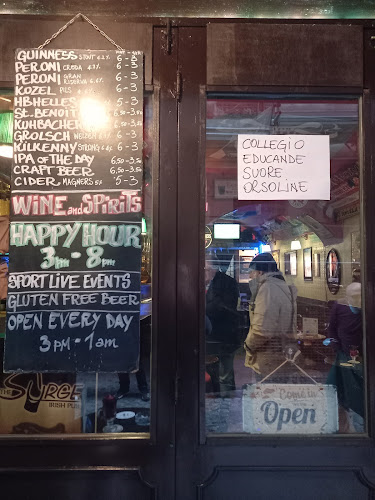 GUINNESS STOUT 4.2% 6-3
PERONI CRUDA 4.7% 6-3
PERONI GRAN RISERVA 6.6% 6-3
KOZEL PILS 6-3
HB HELLES 5-3
ST. BENOIT 6-3
KUHBACHER 6-3
GROLSCH WEIZEN 6-3
KILKENNY STRONG 6-3
IPA OF THE DAY 6,50-3,50
CRAFT BEER 6,50-3,50
CIDER MAGNERS 5-3
WINE and SPIRITS
HAPPY HOUR
3PM - 8PM
SPORT LIVE EVENTS
GLUTEN FREE BEER
OPEN EVERY DAY
3PM - 1am
THE SURGE
IRISH PUB
COLLEGIO
EDUCANDE
SUORE
ORSOLINE
Come in
We're
Open